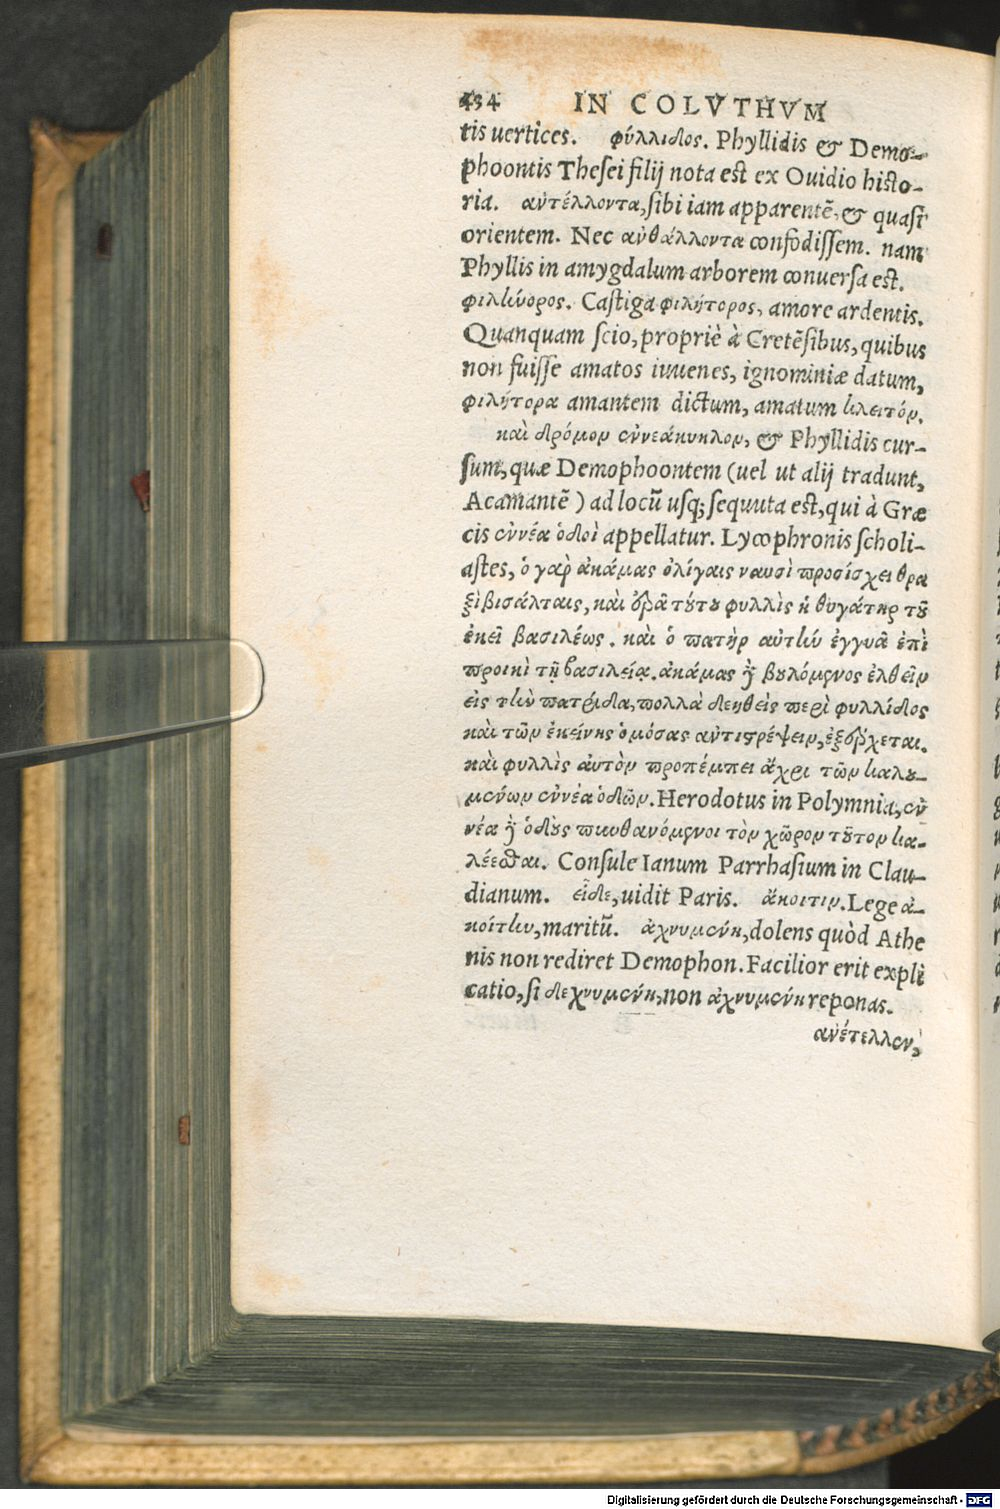 434 IN COLVTHVM
tis uertices. φύλλιδος. Phyllidis & Demo-
phoontis Thesei filij nota est ex Ouidio histo-
ria. αὐτέλλοντα, sibi iam apparentẽ, & quasi
orientem. Nec αὐθάλλοντα confodissem. nam
Phyllis in amygdalum arborem conuersa est.
φιλήνορος. Castiga φιλήτορος, amore ardentis.
Quanquam scio, propriè à Cretẽsibus, quibus
non fuisse amatos iuuenes, ignominiæ datum,
φιλήτορα amantem dictum, amatum κλειτόν.
καὶ δρόμον ἐννεάκυκλον, & Phyllidis cur-
sum, quæ Demophoontem (uel ut alij tradunt,
Acamantẽ) ad locũ usq; sequuta est, qui à Græ
cis ἐννέα ὁδοὶ appellatur. Lycophronis scholi-
astes, ὁ γὰρ ἀκάμας ὀλίγαις ναυσὶ προσίσχει θρᾳ
ξὶ βισάλταις, καὶ ἐρᾷ τούτου φυλλὶς ἡ θυγάτηρ τοῦ
ἐκεῖ βασιλέως. καὶ ὁ πατὴρ αὐτὴν ἐγγυᾷ ἐπὶ
προικὶ τῇ βασιλείᾳ. ἀκάμας δὲ βουλόμενος ἐλθεῖν
εἰς τὴν πατρίδα, πολλὰ δεηθεὶς περὶ φυλλίδος
καὶ τῶν ἐκείνης ὀμόσας αὐτιστρέψειν, ἐξέρχεται.
καὶ φυλλὶς αὐτὸν προπέμπει ἄχρι τῶν καλου-
μένων ἐννέα ὁδῶν. Herodotus in Polymnia, ἐν
νέα δὲ ὁδοὺς πυνθανόμενοι τὸν χῶρον τοῦτον κα-
λέεσθαι. Consule Ianum Parrhasium in Clau-
dianum. εἶδε, uidit Paris. ἄκοιτιν. Lege ἀ-
κοίτην, maritũ. ἀχνυμένη, dolens quòd Athe
nis non rediret Demophon. Facilior erit expli
catio, si δεχνυμένη, non ἀχνυμένη reponas.
ἀνέτελλεν,
Digitalisierung gefördert durch die Deutsche Forschungsgemeinschaft - DFG